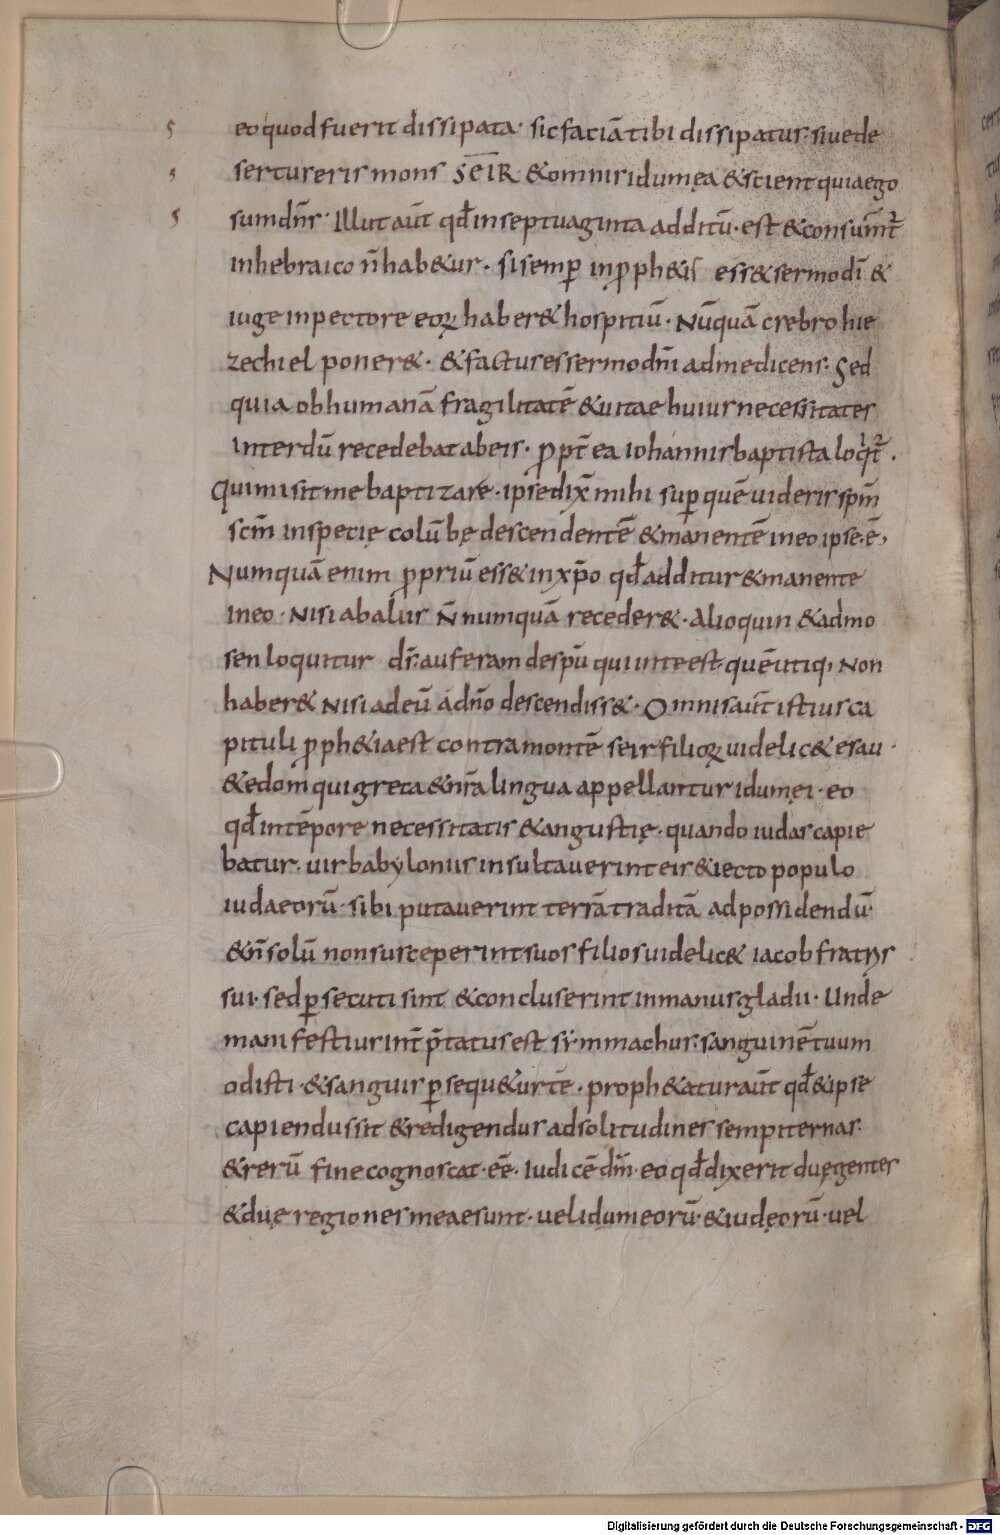 eo quod fuerit dissipata· sic faciā tibi dissipatus· siue de
sertus eris mons SEIR· & omnis idumęa & scient quia ego
sum dn̄s· Illut aūt qd̄ in septuaginta additū· est & consummt̄
in hebraico n̄ hab&ur· si semp̄ in ꝓph&is ess& sermo dī &
iuge in pectore eoꝝ haber& hospitiū· Nūquā crebro hie
zechiel poner&· & factus es sermo dn̄i ad me dicens· Sed
quia ob humanā fragilitatē & uitae huius necessitates
interdū recedebat ab eis· ꝓpt̄ ea iohannis baptista loqt̄·
Qui misit me baptizare· ipse dix̄ mihi sup̄ quē uideris sp̄m
sc̄m in specię colūbę descendentē & manentē in eo ipse ē,
Numquā enim ꝓpriū ess& in xp̄o qd̄ additur & manente
in eo· Nisi ab aliis n̄ numquā receder&· Alioquin & ad mo
sen loquitur dn̄s· auferam de sp̄u qui in te est· quē utiq, Non
haber& Nisi ad eū á dn̄o descendiss&· Omnis aūt istius ca
pituli ꝓph&ia est contra montē seir filioꝝ uidelic& esau·
& edom qui greca & nr̄a lingua appellantur idumęi· eo
qd̄ in tēpore necessitatis & angustię· quando iudas capie
batur· uir babylonius insultauerint eis & iecto populo
iudaeorū· sibi putauerint terrā traditā ad possidendū·
& n̄ solū non susceperint suos filios uidelic& iacob fratris
sui· sed p̄secuti sint & concluserint in manus gladii· Unde
manifestius int̄p̄tatus est symmachus· sanguinē tuum
odisti· & sanguis p̄sequ&ur tē· proph&atur aūt qd̄ & ipse
capiendus sit & redigendus ad solitudines sempiternas·
& rerū fine cognoscat· eē· Iudicē dn̄m· eo qd̄ dixerit duę gentes
& duę regiones meae sunt· uel idumeorū· & iudęorū· uel